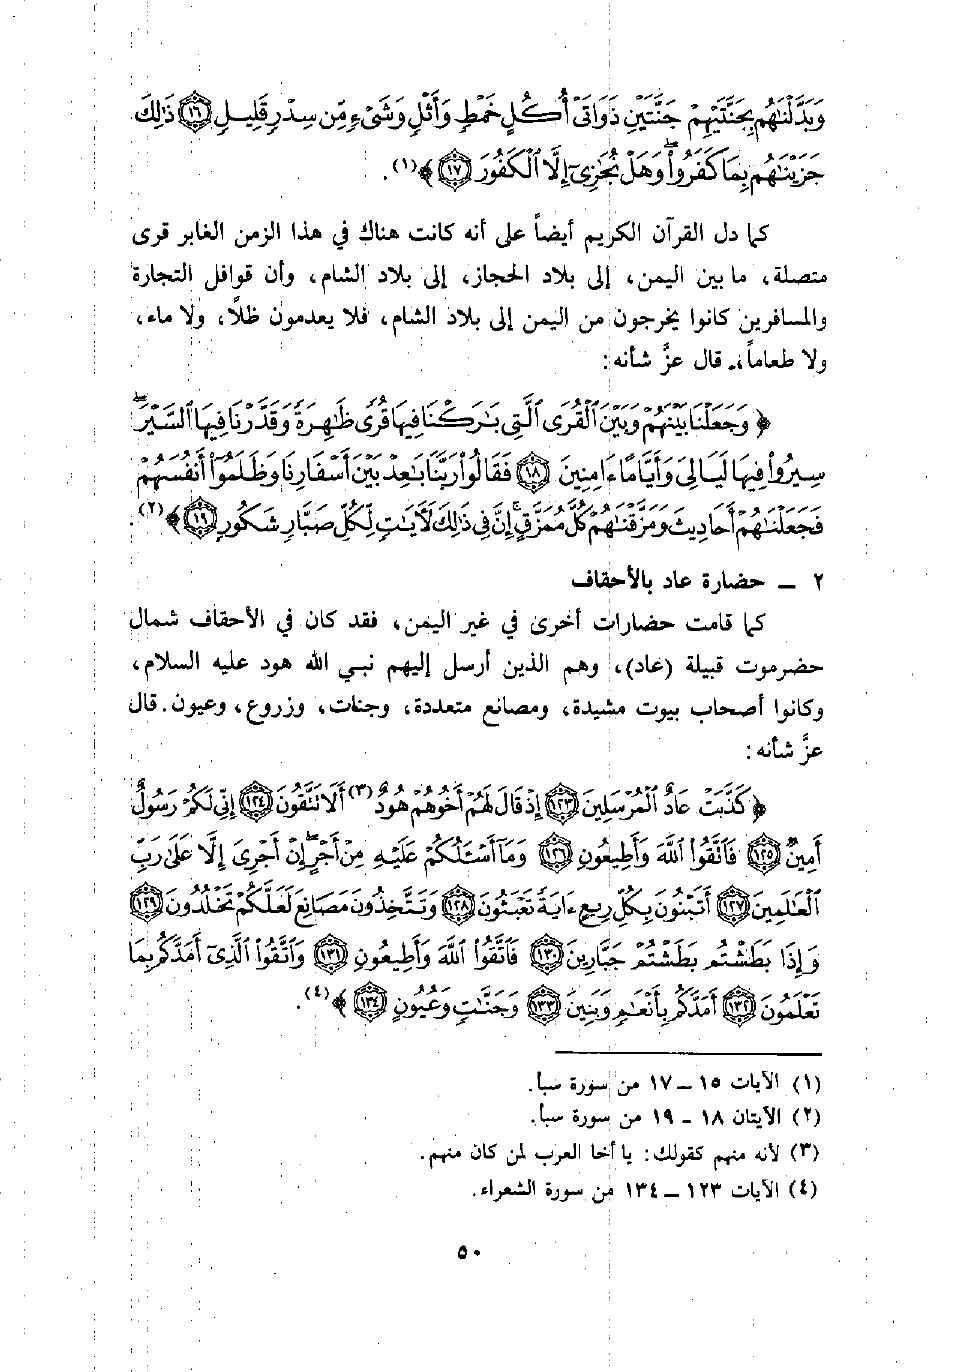 وَبَدَّلْنَٰهُم بِجَنَّتَيْهِمْ جَنَّتَيْنِ ذَوَاتَىْ أُكُلٍ خَمْطٍ وَأَثْلٍ وَشَىْءٍ مِّن سِدْرٍ قَلِيلٍ ١٦ ذَٰلِكَ
جَزَيْنَٰهُم بِمَا كَفَرُوا۟ ۖ وَهَلْ نُجَٰزِىٓ إِلَّا ٱلْكَفُورَ ١٧ ﴾(١).
كما دل القرآن الكريم أيضاً على أنه كانت هناك في هذا الزمن الغابر قرى
متصلة، ما بين اليمن، إلى بلاد الحجاز، إلى بلاد الشام، وأن قوافل التجارة
والمسافرين كانوا يخرجون من اليمن إلى بلاد الشام، فلا يعدمون ظلاً، ولا ماء،
ولا طعاماً، قال عزَّ شأنه:
﴿ وَجَعَلْنَا بَيْنَهُمْ وَبَيْنَ ٱلْقُرَى ٱلَّتِى بَٰرَكْنَا فِيهَا قُرًى ظَٰهِرَةً وَقَدَّرْنَا فِيهَا ٱلسَّيْرَ ۖ
سِيرُوا۟ فِيهَا لَيَالِىَ وَأَيَّامًا ءَامِنِينَ ١٨ فَقَالُوا۟ رَبَّنَا بَٰعِدْ بَيْنَ أَسْفَارِنَا وَظَلَمُوٓا۟ أَنفُسَهُمْ
فَجَعَلْنَٰهُمْ أَحَادِيثَ وَمَزَّقْنَٰهُمْ كُلَّ مُمَزَّقٍ ۚ إِنَّ فِى ذَٰلِكَ لَءَايَٰتٍ لِّكُلِّ صَبَّارٍ شَكُورٍ ١٩ ﴾(٢)
٢ ــ حضارة عاد بالأحقاف
كما قامت حضارات أخرى في غير اليمن، فقد كان في الأحقاف شمال
حضرموت قبيلة (عاد)، وهم الذين أرسل إليهم نبي الله هود عليه السلام،
وكانوا أصحاب بيوت مشيدة، ومصانع متعددة، وجنات، وزروع، وعيون. قال
عزَّ شأنه:
﴿ كَذَّبَتْ عَادٌ ٱلْمُرْسَلِينَ ١٢٣ إِذْ قَالَ لَهُمْ أَخُوهُمْ هُودٌ(٣) أَلَا تَتَّقُونَ ١٢٤ إِنِّى لَكُمْ رَسُولٌ
أَمِينٌ ١٢٥ فَٱتَّقُوا۟ ٱللَّهَ وَأَطِيعُونِ ١٢٦ وَمَآ أَسْـَٔلُكُمْ عَلَيْهِ مِنْ أَجْرٍ ۖ إِنْ أَجْرِىَ إِلَّا عَلَىٰ رَبِّ
ٱلْعَٰلَمِينَ ١٢٧ أَتَبْنُونَ بِكُلِّ رِيعٍ ءَايَةً تَعْبَثُونَ ١٢٨ وَتَتَّخِذُونَ مَصَانِعَ لَعَلَّكُمْ تَخْلُدُونَ ١٢٩
وَإِذَا بَطَشْتُم بَطَشْتُمْ جَبَّارِينَ ١٣٠ فَٱتَّقُوا۟ ٱللَّهَ وَأَطِيعُونِ ١٣١ وَٱتَّقُوا۟ ٱلَّذِىٓ أَمَدَّكُم بِمَا
تَعْلَمُونَ ١٣٢ أَمَدَّكُم بِأَنْعَٰمٍ وَبَنِينَ ١٣٣ وَجَنَّٰتٍ وَعُيُونٍ ١٣٤ ﴾(٤).
(١) الآيات ١٥ ــ ١٧ من سورة سبأ.
(٢) الآيتان ١٨ ــ ١٩ من سورة سبأ.
(٣) لأنه منهم كقولك: يا أخا العرب لمن كان منهم.
(٤) الآيات ١٢٣ ــ ١٣٤ من سورة الشعراء.
٥٠